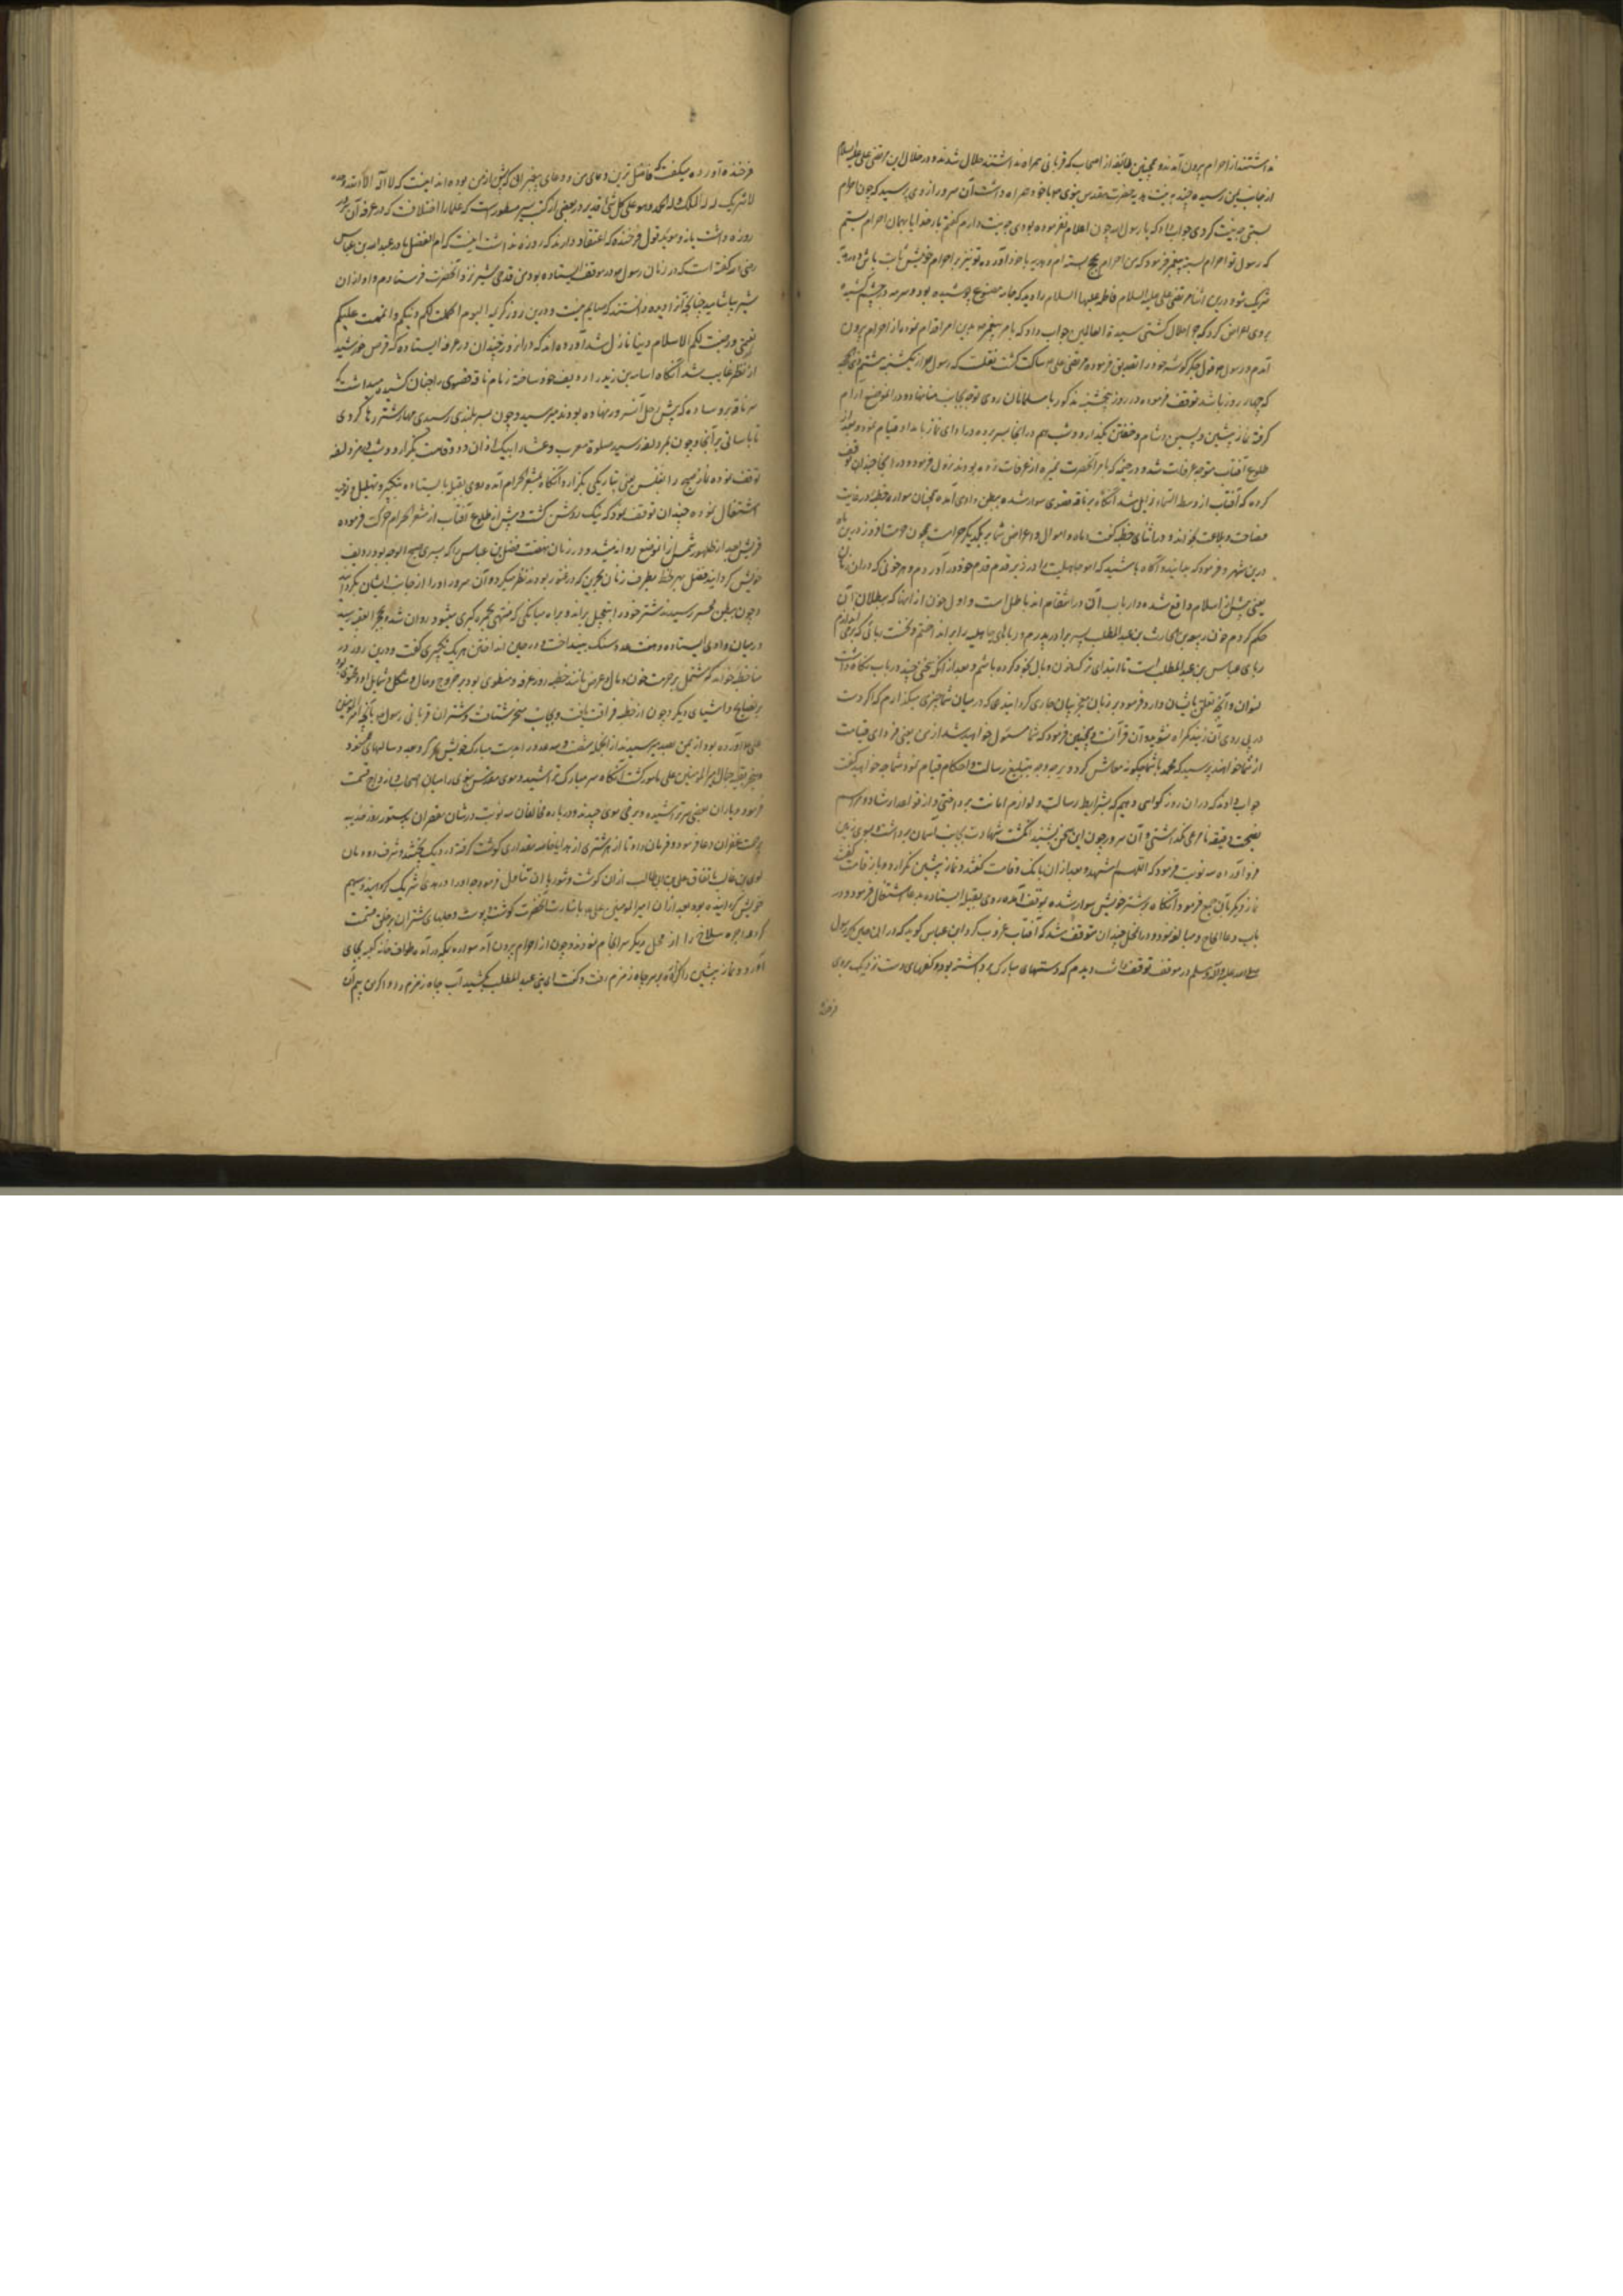 نداشتند از احرام بیرون آمدند و همچنین طایفه از اصحاب که قربانی همراه نداشتند حلال شدند و در خلال این مرتضی علی علیه السلام
از جانب یمن رسیده چند بدنه هدیه حضرت مقدس نبوی با خود همراه داشت آن سرور از وی پرسید که چون احرام
بستی چه نیت کردی جواب داد که یا رسول الله چون اعلام نفرموده بودی چه نیت دارم گفتم بار خدایا بهمان احرام بستم
که رسول تو احرام بسته پیغمبر فرمود که من احرام بحج بسته ام و هدیه با خود آورده تو نیز بر احرام خویش ثابت باش و در هدیه
شریک شو درین اثنا مرتضی علی علیه السلام فاطمه علیها السلام را دید که جامه مصبوغ پوشیده بود و سرمه در چشم کشیده
بروی اعراض کرد که چرا حلال گشتی سیدة العالمین جواب داد که بامر پیغمبر بدین امر اقدام نموده از احرام بیرون
آمدم و رسول قول جگر گوشه خود را تصدیق فرموده مرتضی علی ساکت گشت نقلست که رسول از یکشنبه
که چهار روز باشد توقف فرموده در روز پنجشنبه مذکور با مسلمانان روی توجه بجانب منا نهاد و در آن موضع آرام
گرفته نماز پیشین و پسین و شام و خفتن بگذارد و شب هم در آنجا بسر برده در ادای نماز بامداد قیام نمود و بعد از
طلوع آفتاب متوجه عرفات شد و در خیمه که بامر آنحضرت بنمره از عرفات زده بودند نزول فرموده در آنجا چندان توقف
کرده که آفتاب از وسط السماء زایل شد آنگاه بر ناقه قصوی سوار شده ببطن وادی آمده همچنان سواره خطبه در غایت
فصاحت و بلاغت بخواند و در اثنای خطبه گفت دماء و اموال و اعراض شما بر یکدیگر حرامست همچون حرمت این روز درین ماه
درین شهر و فرمود که بدانید و آگاه باشید که امور جاهلیت را در زیر قدم خود در آوردم و هر خونی که در آن زمان
یعنی پیش از اسلام واقع شده و ارباب آن در انتقام اند باطل است و اول خون از آنها که ببطلان آن
حکم کردم خون ربیعه بن الحارث بن عبد المطلب پسر برادر پدرم و رباهای جاهلیه را بر انداختم و نخست ربائی که
ربای عباس بن عبد المطلب است تا ابتدای ترک خون و مال بخود کرده باشم و بعد از آنکه سخنی چند در باب نگاه داشت
نسوان و آنچه تعلق بایشان دارد فرمود بر زبان معجز بیان جاری گردانید که در میان شما چیزی میگذارم که اگر دست
در پی روی آن زنید گمراه نشوید و آن قرآنست و همچنین فرمود که شما مسئول خواهید شد از من یعنی فردای قیامت
از شما خواهند پرسید که محمد با شما چگونه معاش کرد و بر چه وجه بتبلیغ رسالت و احکام قیام نمود شما چه خواهید گفت
جواب دادند که در آن روز گواهی دهیم که بشرایط رسالت و لوازم امانت پرداختی و از قواعد ارشاد و مراسم
نصیحت دقیقه نامرعی نگذاشتی و آن سرور چون این سخن بشنید انگشت شهادت بجانب آسمان برداشت و بسوی زمین
فرو آورده سه نوبت فرمود که اللهم اشهد و بعد از آن بانک و قامت گفتند و نماز پیشین بگزارد و باز قامت گفته
نماز دیگر با آن جمع فرمود و آنگاه بر شتر خویش سوار شده بموقف آمده روی بقبله ایستاده بدعا اشتغال فرمود و در
باب دعا الحاح و مبالغه نمود و در آن محل چندان متوقف شد که آفتاب غروب کرد ابن عباس گوید که در آن حین که رسول
صلی الله علیه و آله و سلم در موقف توقف داشت دیدم که دستهای مبارک برداشته بود و کفهای دست نزدیک بروی
فرخنده
فرخنده آورده میگفت که فاضل ترین دعای من و دعای پیغمبرانی که پیش از من بوده اند اینست که لا اله الا الله وحده
لا شریک له له الملک و له الحمد و هو علی کل شئ قدیر در بعضی از کتب سیر مسطورست که علما را اختلافست که در عرفه آن سرور
روزه داشت یا نه و موید قول فرخنده که اعتقاد دارند که روزه نداشت اینست که ام الفضل مادر عبد الله بن عباس
رضی الله گفته است که در زمان رسول در موقف ایستاده بود من قدحی شیر نزد آنحضرت فرستادم و او از آن
شیر بیاشامید چنانچه آنرا دیده دانستند که صایم نیست و درین روز کریمه الیوم اکملت لکم دینکم و اتممت علیکم
نعمتی و رضیت لکم الاسلام دینا نازل شد آورده اند که در آن روز چندان در عرفه ایستاده که قرص خورشید
از نظر غایب شد آنگاه اسامه بن زید را ردیف خود ساخته زمام ناقه قصوی را چنان کشیده میداشت که
سر ناقه بر وساده که پیش رحل آنسرور نهاده بودند میرسید و چون بسر بلندی رسیدی مهار شتر رها کردی
تا بآسانی بر آنجا و چون بمزدلفه رسید صلوة مغرب و عشا را بیک اذان و دو قامت بگزارد و شب در مزدلفه
توقف نموده نماز صبح را بغلس یعنی بتاریکی بگزارد و آنگاه بمشعر الحرام آمده روی بقبله بایستاده بتکبیر و تهلیل و توحید
اشتغال نموده چندان توقف نمود که نیک روشن گشت و پیش از طلوع آفتاب از مشعر الحرام حرکت فرموده
قریش بعد از ظهور شمس از آن موضع روانه میشد و در زمان نهضت فضل بن عباس را که پسری صبیح الوجه بود ردیف
خویش گردانید فضل هر لحظه بطرف زنان که در عبور بودند نظر میکرد و آن سرور او را از جانب ایشان بگردانید
و چون ببطن محسر رسید شتر خود را بتعجیل براند و براه میانگی که منتهی بجمره کبری میشود روان شده بجمرة العقبه رسید
در میان وادی ایستاده و هفت عدد سنگ بینداخت و در حین انداختن هر یک تکبیری گفت و درین روز در
منا خطبه خواند که مشتمل بر حرمت خون و مال و عرض مانند خطبه روز عرفه و منطوی بود بر خروج دجال و شکل و شمایل او
بر نصایح و اشیای دیگر و چون از خطبه فراغت یافت و بجانب منحر شتافت و شتران قربانی رسول با آنچه امیر المؤمنین
علی آورده بود از یمن بصد میرسیدند از آنجمله شصت و سه عدد را بدست مبارک خویش نحر کرد بعدد سالهای عمر خود و
بنحر بقیه جمال امیر المؤمنین علی مامور گشت آنگاه سر مبارک تراشید و موی مقدس نبوی را میان اصحاب و ازواج قسمت
فرمود و یاران بعضی سر تراشیده و برخی موی چیدند و درباره محلقان سه نوبت و در شان مقصران یک نوبت
بر حمت غفران دعا فرمود و فرمان داد تا از هر شتری از هدایا خاصه مقداری گوشت گرفته در دیک بپختند و شرف دودمان
لوی بن غالب باتفاق علی بن ابیطالب از آن گوشت و شوربا آن تناول فرمود چه او را در هدی شریک و سهیم
خویش گردانیده بود بعد از آن امیر المؤمنین علی باشارت آنحضرت گوشت و پوست و جلهای شتران بر خلق قسمت
کرد و اجره سلاخ را از محل دیگر سرانجام نمودند و چون از احرام بیرون آمد سواره بمکه در آمد و طواف خانه کعبه بجای
آورد و نماز پیشین را گزارد بر سر چاه زمزم رفت و گفت ای بنی عبد المطلب بکشید آب چاه زمزم را و اگر من بیم آن